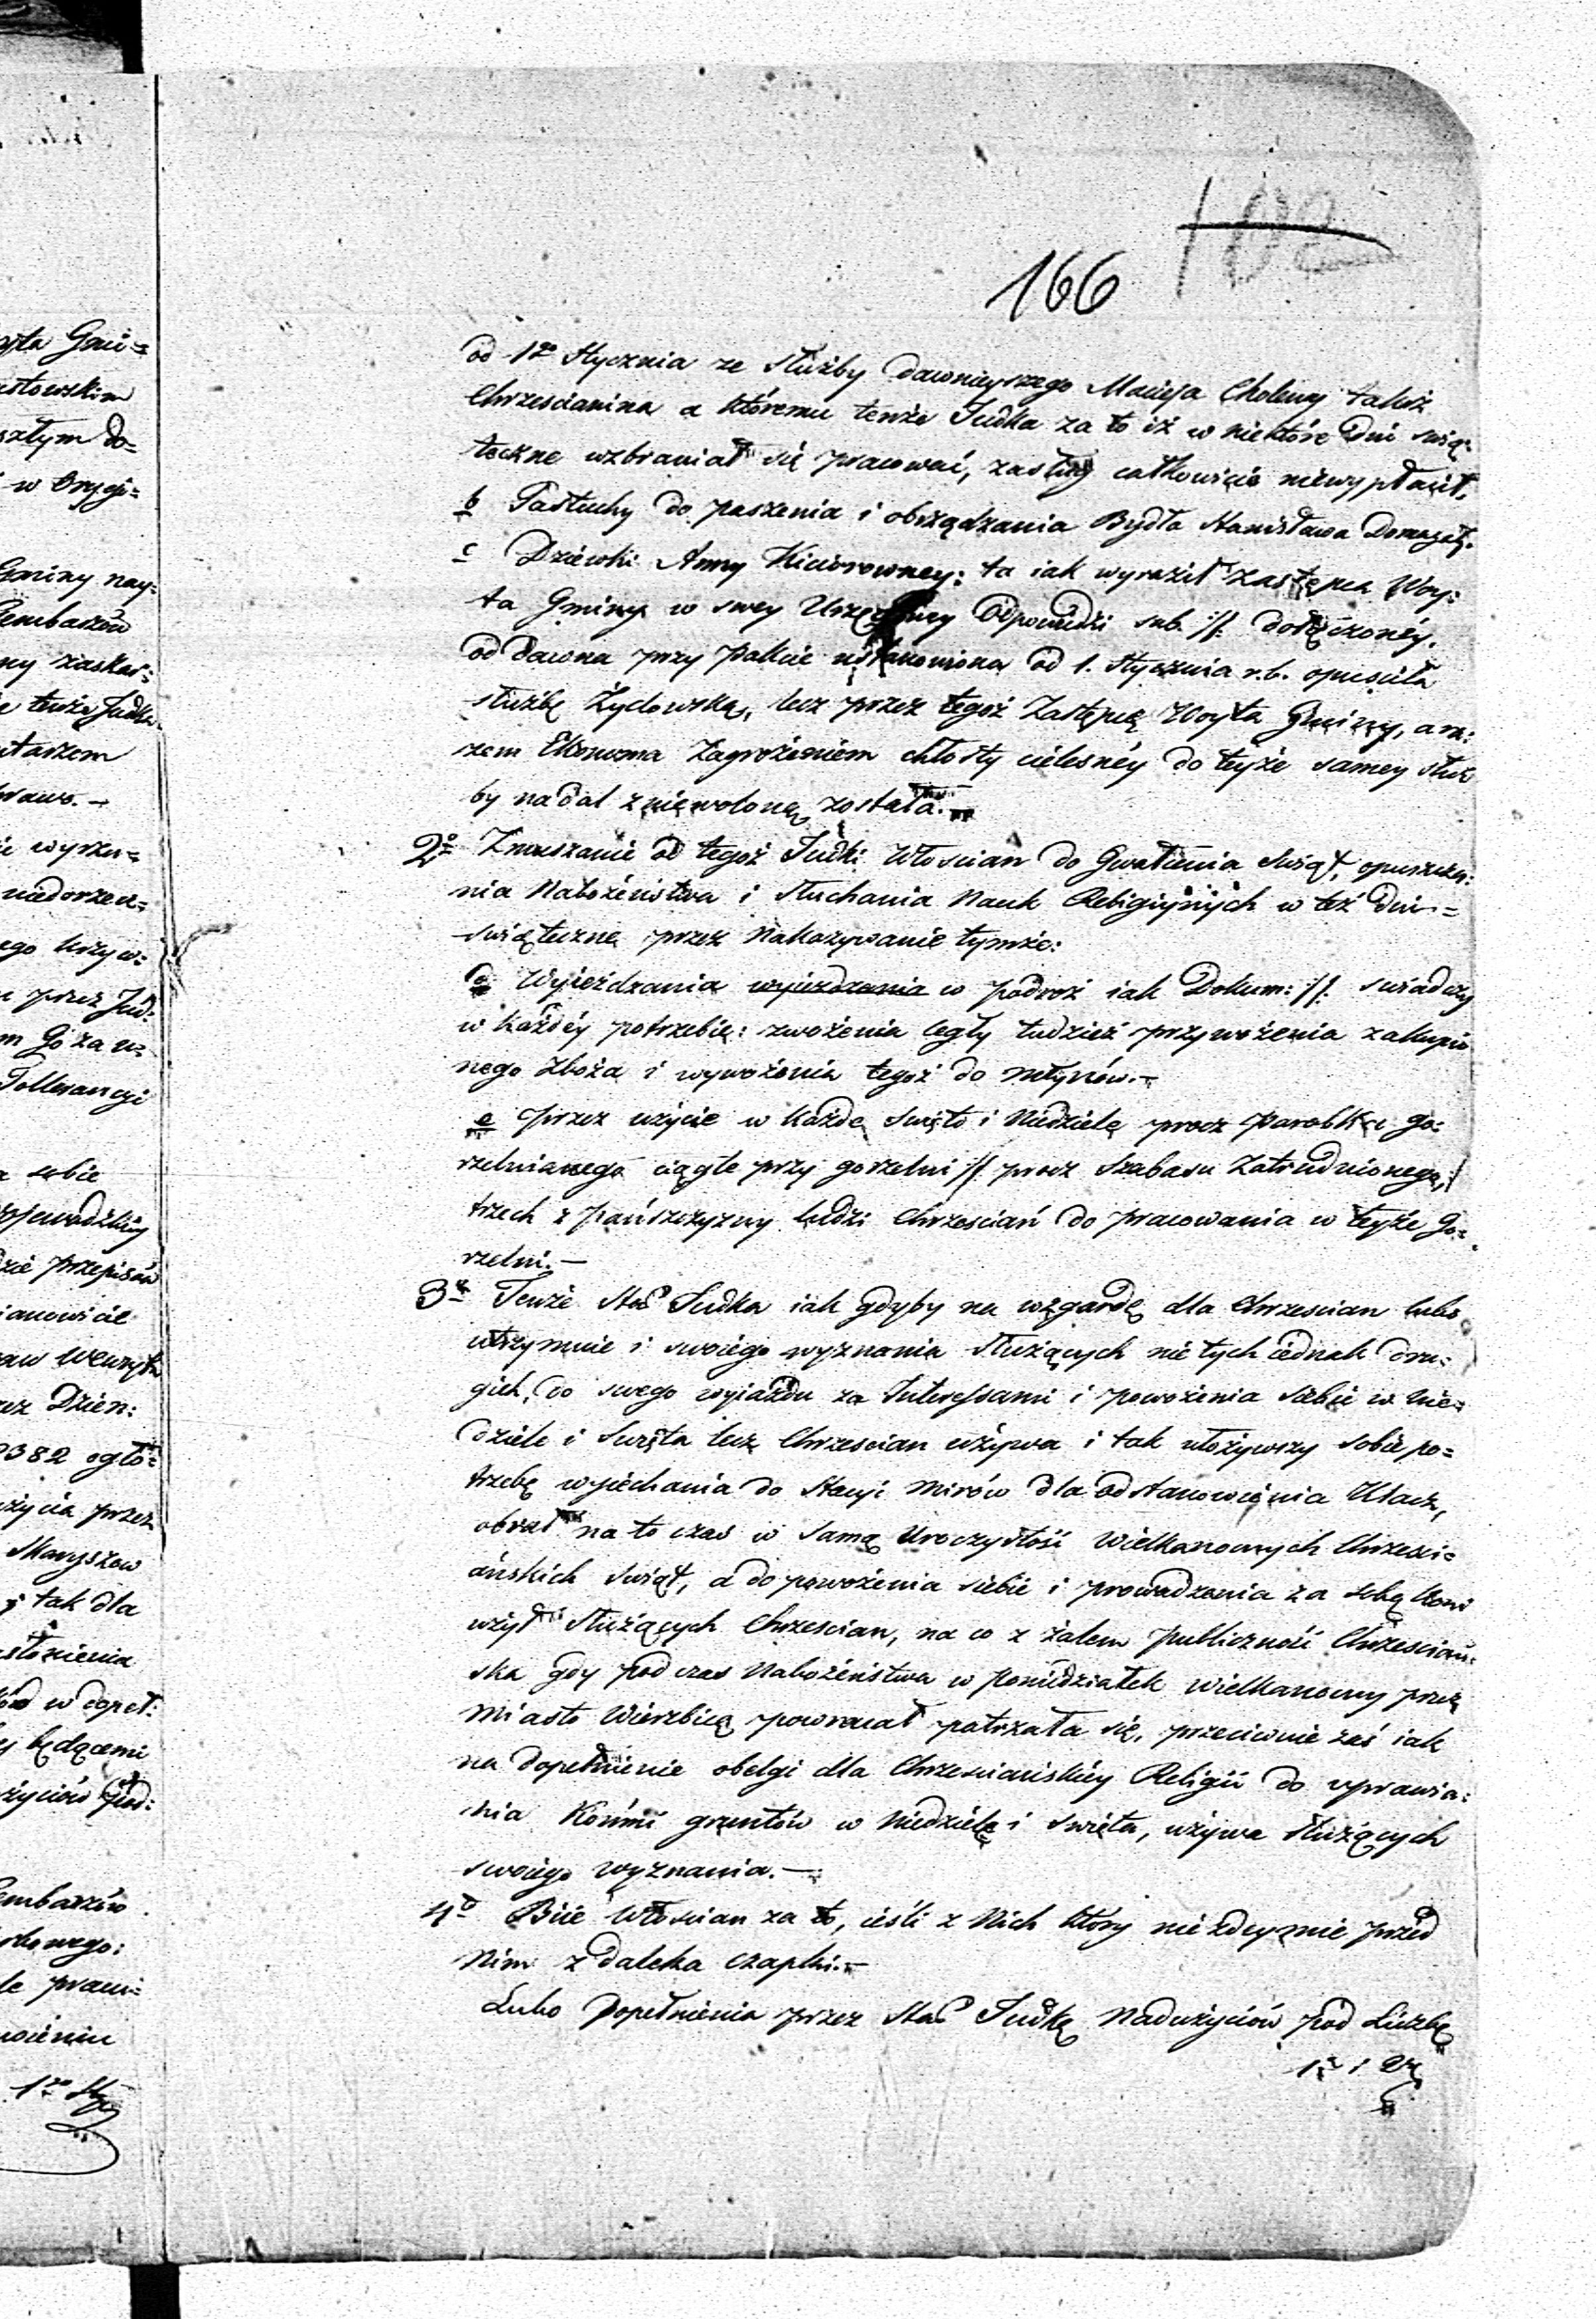 166
od 1go Stycznia ze służby dawnieyszego Macieja Cholewy także
Chrzescianina a któremu tenże Judka za to iż w niektóre dni świą:
teczne wzbraniał się pracować, zasług całkowicie niewypłacił.
b Pastuchy do paszenia i obrządzania Bydła Stanisława Domagał:
c Dziewki Anny Kiciorowney: ta iak wyraził Zastępca Woy:
ta Gminy w swey Urzędowey Odpowiedzi sub. //. dołączonéy.
od dawna przy Pakcie ustanowiona od 1. Stycznia r.b. opusciła
służbę Żydowską, lecz przez tegoż Zastępcę Woyta Gminy, a ra:
zem Ekonoma Zagrożeniem chłosty cielesnéy do teyże samey służ
by nadal zniewoloną została.—
2o Zmuszanie od tegoż Judki Włoscian do Gwałcenia Swiąt, opuszcza:
nia Nabożeństwa i Słuchania Nauk Religiynych w też dni =
swiąteczne przez Nakazywanie tymże:
d Wyieżdzania wyiezdzania w podroż iak Dokum: //. swiadczy
w każdéy potrzebie: zwożenia cegły tudzież przywożenia zakupio
nego zboża i wywożenia tegoż do młynów.—
e przez użycie w każde Swięto i Niedzielę procz Parobka go:
rzelnianego ciągle przy gorzelni // procz Szabasu Zatrudnionego, /
trzech z Pańszczyzny ludzi Chrzescian do pracowania w teyże Go=
rzelni.—
3o Tenże Staro Judka iak gdyby na wzgardę dla Chrzescian lubo
utrzymuie i swoiego wyznania Służących nie tych iednak dru=
gich, do swego wyiazdu za Interessami i powożenia siebie w Nie=
dziele i Swięta lecz Chrzescian używa i tak ułożywszy sobie po=
trzebę wyiechania do Stacyi Mirów dla odstanowienia Klacz,
obrał na to czas w samą Uroczystość Wielkanocnych Chrzesci=
ańskich swiąt, a do powożenia siebie i prowadzenia za sobą koni
użył Służących Chrzescian, na co z żalem publiczność Chrzesciań:
ska gdy podczas Nabożeństwa w Poniedziałek Wielkanocny przez
Miasto Wierzbicę powracał patrzała się, przeciwnie zaś iak
na dopełnienie obelgi dla Chrzesciańskiéy Religii do uprawia:
nia Końmi gruntów w Niedzielę i swięta, używa służących
swoiego wyznania.—
4o Biie Włoscian za to, ieśli z Nich który nie zdeymie przed
Nim z daleka czapki.—
Lubo Dopełnienia przez Staro Judkę Nadużyciów pod Liczbą
1ą i 2ą